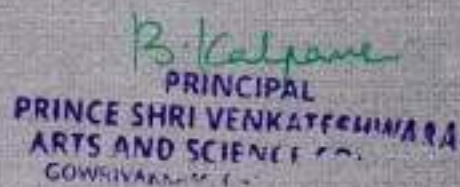 B. Kalpana
PRINCIPAL
PRINCE SHRI VENKATESHWARA
ARTS AND SCIENCE